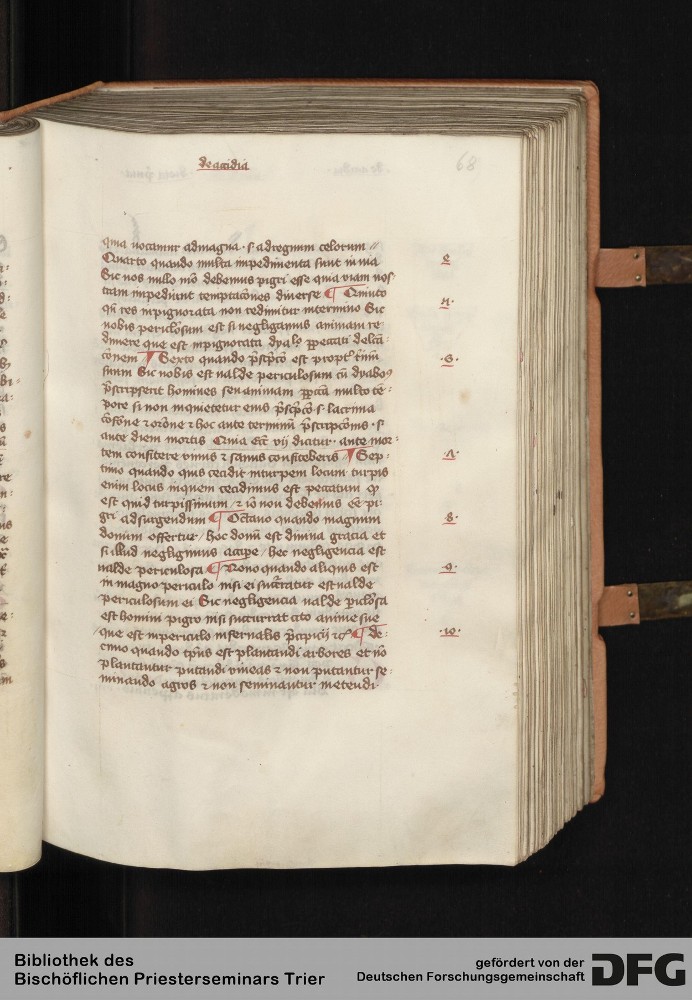 de accidia
68
quia uocamur ad magna · s · ad regnum celorum //
Quarto quando multa impedimenta sunt in uia
Sic nos nullo mō debemus pigri esse quia uiam nos
tram impediunt temptacōnes diuerse ¶ Quinto
qn̄ res inpignorata non redimitur in termino Sic
nobis periclōsum est si negligamus animam re
dimere que est inpignorata dyalo p̱ peccati delcā
cōnem ¶ Sexto quando p̄scpcō est propt
suum Sic nobis est ualde periculosum cū dyabo
p̄scripserit homines seu animam multo tē
pore si non inquietetur eius p̄scpcō · s · lacrima
cōfōne ⁊ orōne ⁊ hoc ante terminū p̄scripcōnis · s
ante diem mortis Quia Ecc̄ vij dicitur · ante mor
tem confitere viuus ⁊ sanus confiteberis ¶ Sep
timo quando quis cecidit in turpem locum turpis
enim locus in quem cecidimus est peccatum
est quid turpissimum / ⁊ iō non debemus eē pi
gri ad surgendum ¶ Octauo quando magnum
donum offertur / hoc donū est diuina gracia et
si illud negligimus accipe / hec negligencia est
ualde periculosa ¶ Nono quando aliquis est
in magno periculo nisi ei succratur est ualde
periculosum ei Sic negligencia ualde piclōsa
est homini pigro nisi succurrat cito anime sue
que est in periculo infernalis p̄cipicij ⁊c̄ ¶ de
cimo quando tp̄us est plantandi arbores et nō
plantantur putandi vineas ⁊ non putantur se
minando agros ⁊ non seminantur metendi
8·
9·
·10·
Bibliothek des
Bischöflichen Priesterseminars Trier
gefördert von der
Deutschen Forschungsgemeinschaft
DFG